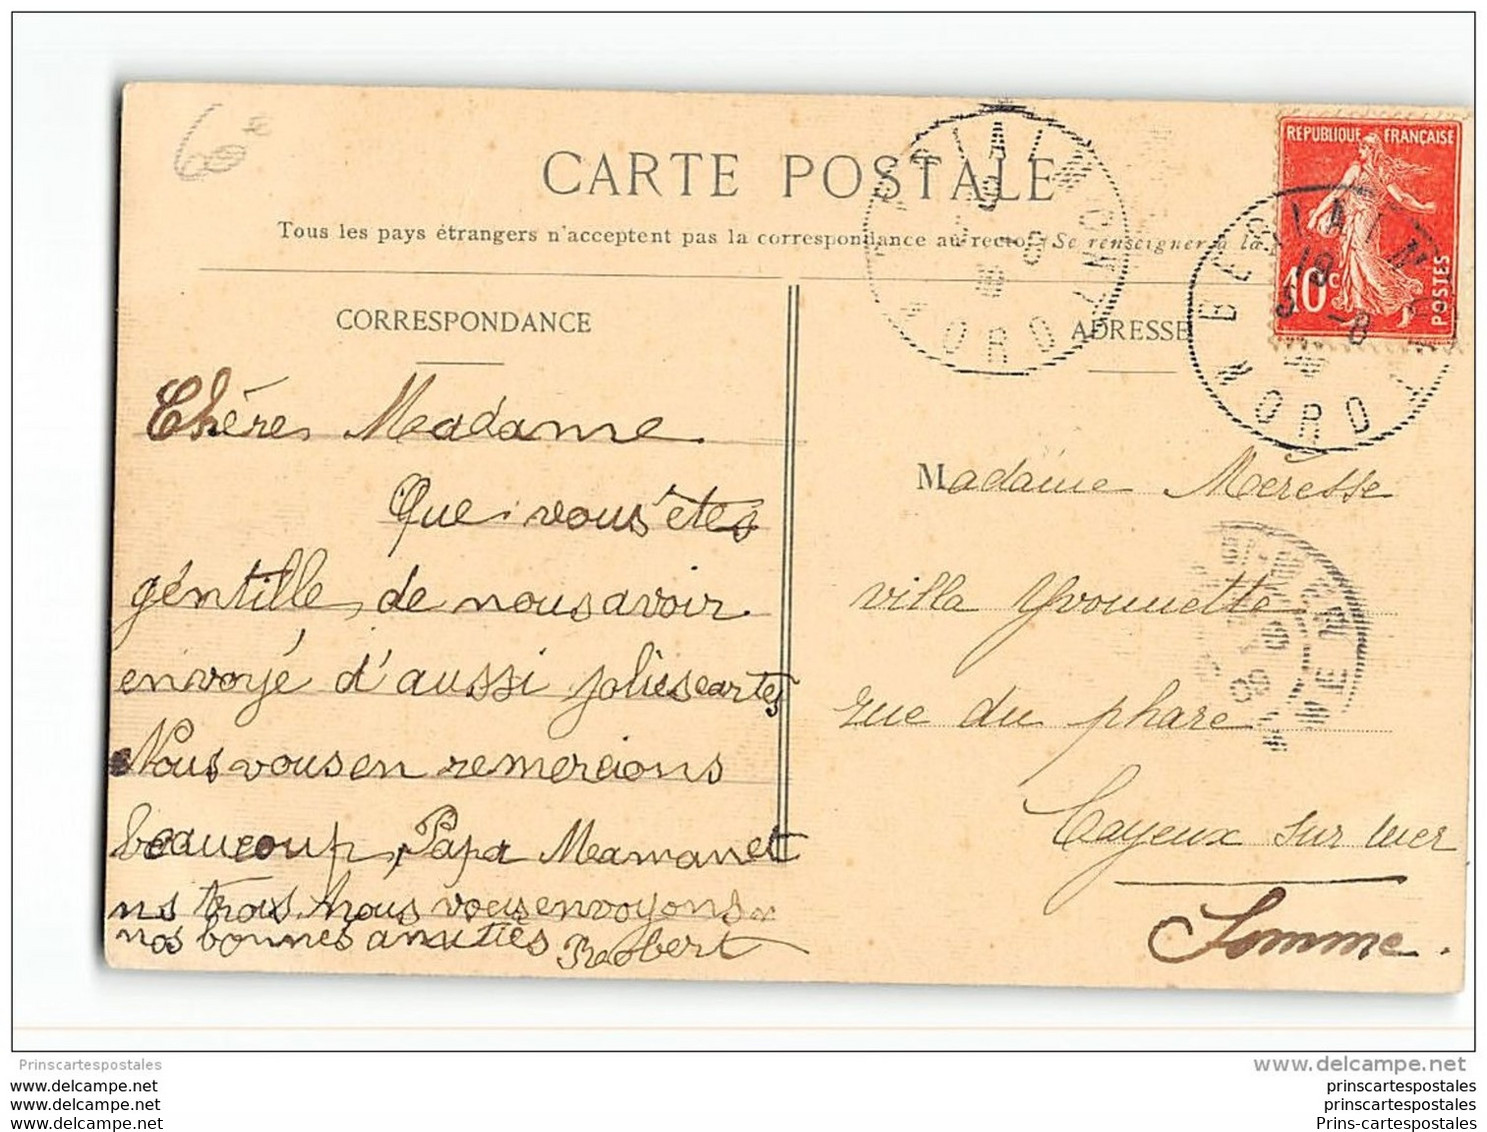 6e
CARTE POSTALE
Tous les pays étrangers n'acceptent pas la correspondance au recto. (Se renseigner à la
REPUBLIQUE FRANÇAISE
10c
POSTES
BERLAIMONT
NORD
BERLAIMONT
19
5 -8
NORD
CORRESPONDANCE
ADRESSE
Chères Madame
Que vous êtes
géntille de nous avoir
envoyé d'aussi jolies cartes
Nous vous en remercions
beaucoup, Papa Maman et
ns trois. Nous vous envoyons
nos bonnes amitiés Robert
Madame Méresse
villa Yvonnette
rue du phare
Cayeux sur mer
Somme.
Prinscartespostales
www.delcampe.net
www.delcampe.net
www.delcampe.net
www.delcampe.net
prinscartespostales
prinscartespostales
Prins-cartespostales